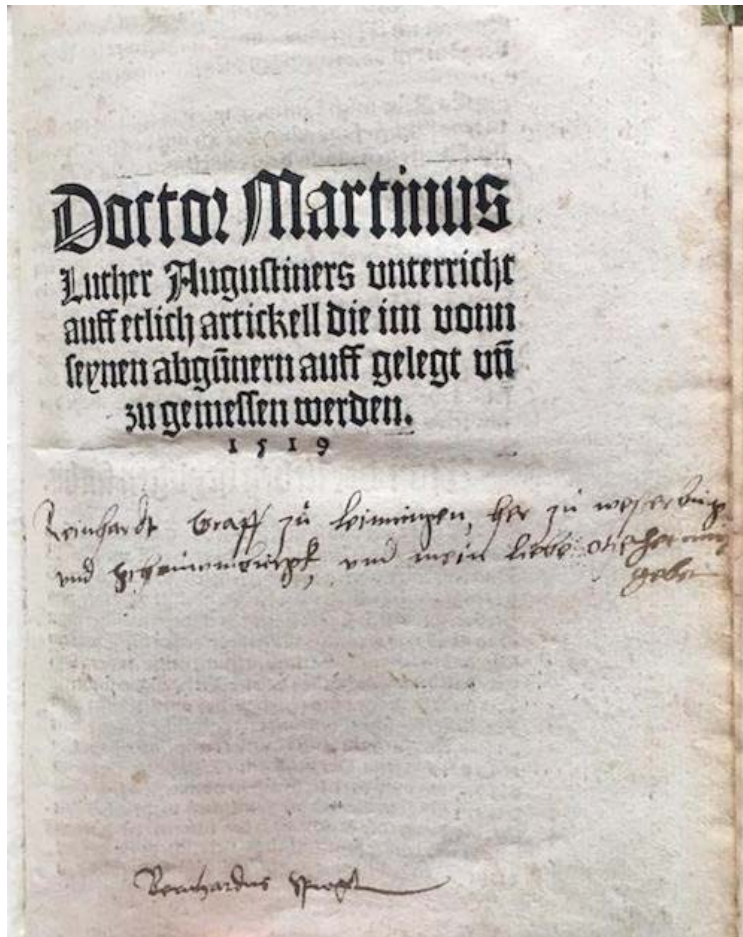 Doctor Martinus
Luther Augustiners vnterricht
auff etlich artickell die im vonn
seynen abgünern auff gelegt vñ
zu gemessen werden.
1519
Reinhardt Graff zů leiningen, her zů westerburg
vnd vnd mein liebe
geben
Bernhardus